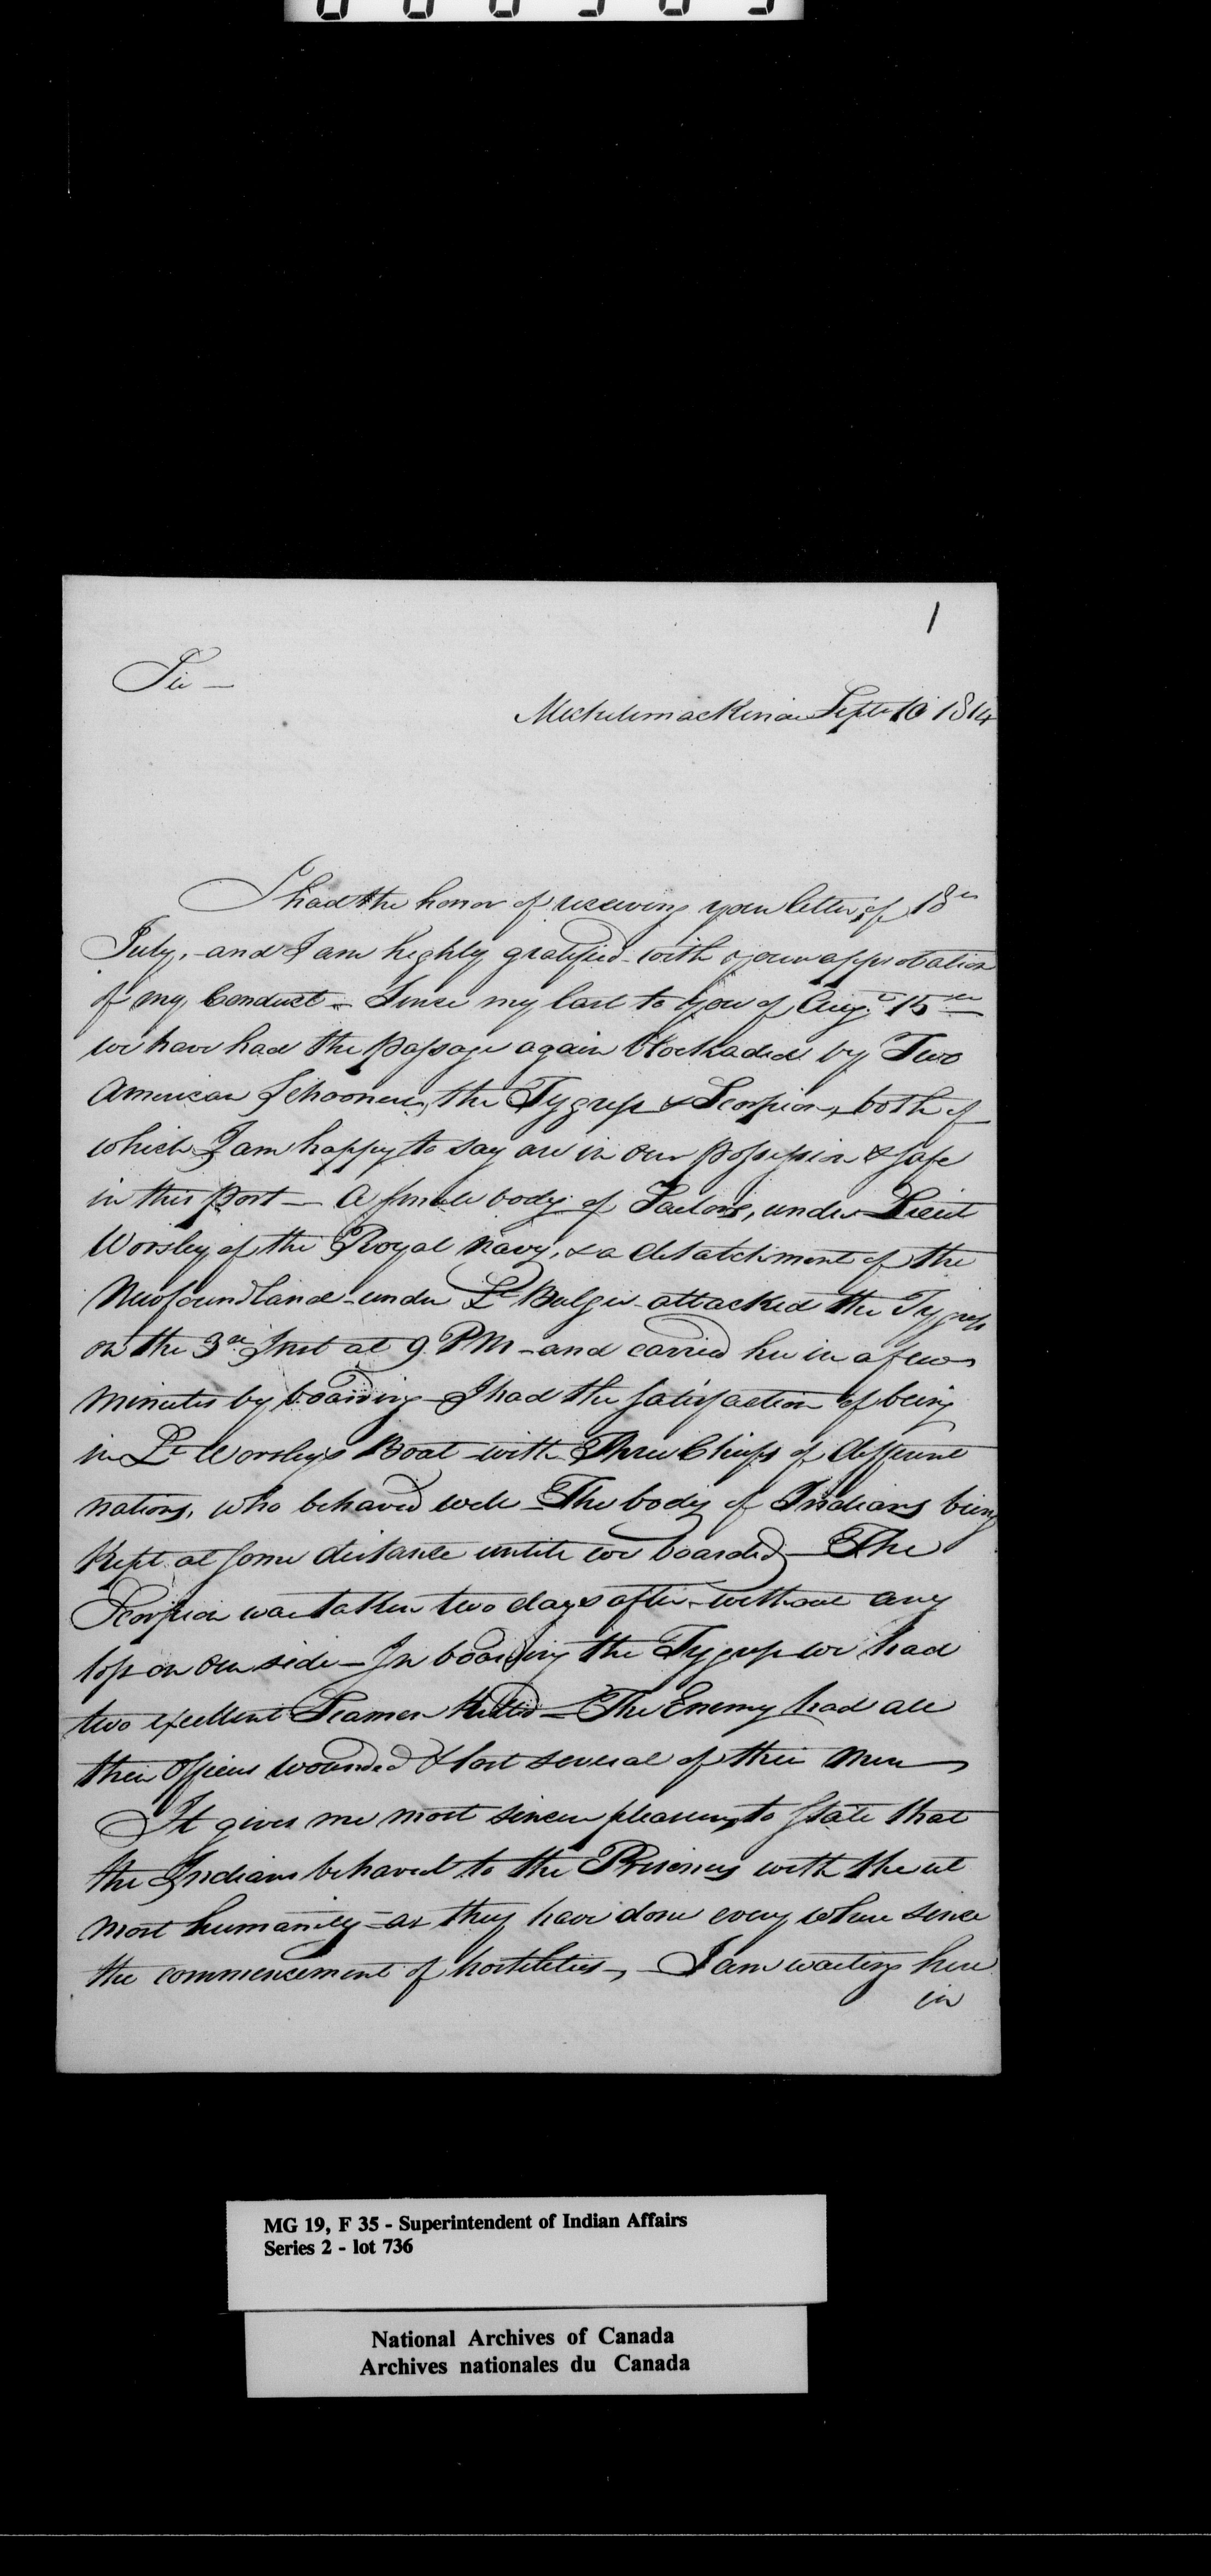 1
Sir —
Michilimackinac Septr 10 1814
I had the honor of receiving your letter of 18th
July, - and I am highly gratified - with your approbation
of my Conduct - Since my last to you of Augt 15th
we have had the passage again blockaded by Two
American Schooners, the Tygress & Scorpion, both of
which I am happy to say are in our possession & safe
in this port - A small body of Sailors, under Lieut
Worsley of the Royal Navy, & a detatchment of the
Newfoundland - under Lt Bulger - attacked the Tygress
on the 3rd Inst at 9 PM - and carried her in a few
minutes by boarding - I had the satisfaction of being
in Lt Worsleys Boat - with Three Chiefs of different
nations, who behaved well - The body of Indians being
kept at some distance untill we boarded - The
Scorpion was taken two days after - without any
loss on our side - In boarding the Tygress we had
two excellent Seamen killed - The Enemy had all
their Officers wounded & lost several of their men
It gives me most sincere pleasure to state that
the Indians behaved to the Prisoners with the ut
most humanity - as they have done every where since
the commencement of hostilities -, I am waiting here
in
MG 19, F 35 - Superintendent of Indian Affairs
Series 2 - lot 736
National Archives of Canada
Archives nationales du Canada